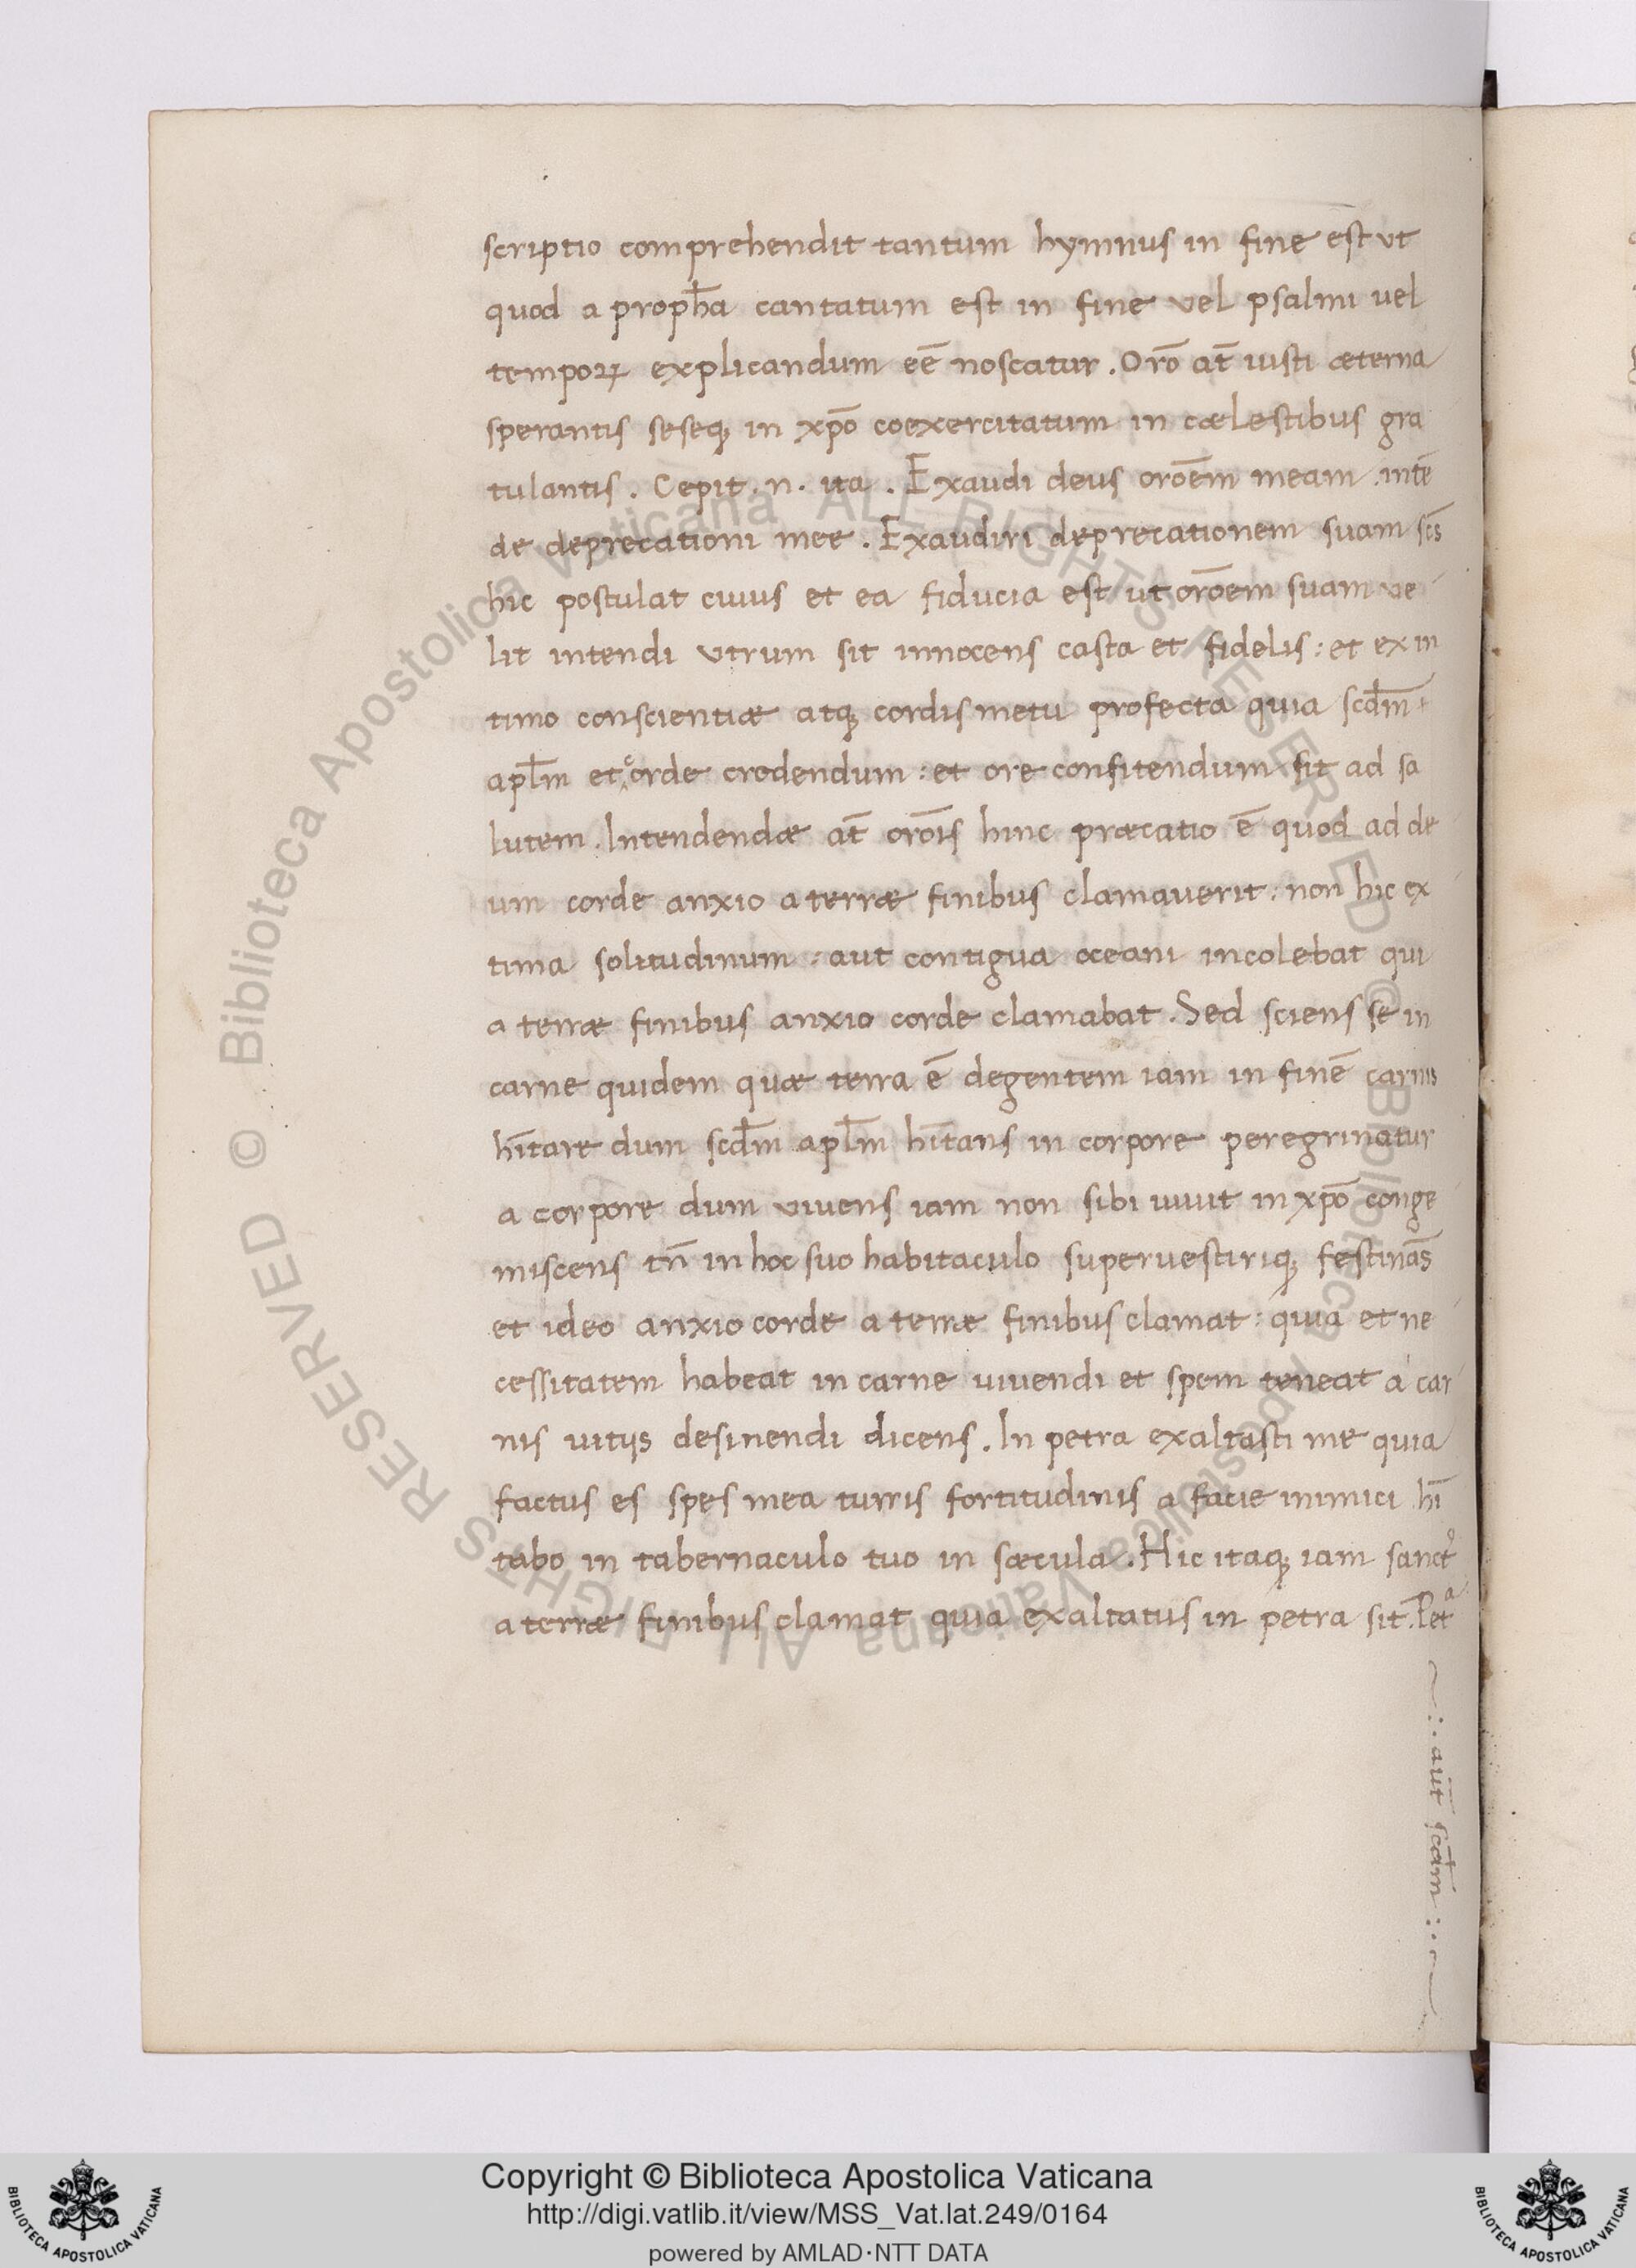 scriptio comprehendit tantum hymnus in fine est ut
quod a proph̄a cantatum est in fine vel psalmi uel
tempoꝝ explicandum eē noscatur. Orō at̄ iusti æterna
sperantis seseq; in xp̄o coexercitatum in cælestibus gra
tulantis. Cepit .n. ita. Exaudi deus orōem meam inte̅
de deprecationi mee. Exaudiri deprecationem suam sc̄s
hic postulat cuius et ea fiducia est ut orōem suam ve
lit intendi utrum sit innocens casta et fidelis: et ex in
timo conscientiæ atq; cordis metu profecta quia scd̄m
apl̄m et corde credendum: et ore confitendum sit ad sa
lutem. Intendendæ at̄ orōis hinc præcatio ē quod ad de
um corde anxio a terræ finibus clamauerit: non hic ex
tima solitudinum: aut contigua oceani incolebat qui
a terræ finibus anxio corde clamabat. Sed sciens se in
carne quidem quæ terra ē degentem iam in finē carnis
hītare dum scd̄m apl̄m hītans in corpore peregrinatur
a corpore dum vivens iam non sibi uiuit in xp̄o conge
miscens tn̄ in hoc suo habitaculo supervestiriq; festinās
et ideo anxio corde a terræ finibus clamat: quia et ne
cessitatem habeat in carne uiuendi et spem teneat a car
nis uitijs desinendi dicens. In petra exaltasti me quia
factus es spes mea turris fortitudinis a facie inimici hī
tabo in tabernaculo tuo in sæcula. Hic itaq; iam sanctꝰ
a terræ finibus clamat quia exaltatus in petra sit. Petª
:. aut̄ scd̄m :.
© Biblioteca Apostolica Vaticana ALL RIGHTS RESERVED © Biblioteca Apostolica Vaticana ALL RIGHTS RESERVED
Copyright © Biblioteca Apostolica Vaticana
http://digi.vatlib.it/view/MSS_Vat.lat.249/0164
powered by AMLAD·NTT DATA
BIBLIOTECA APOSTOLICA VATICANA
BIBLIOTECA APOSTOLICA VATICANA